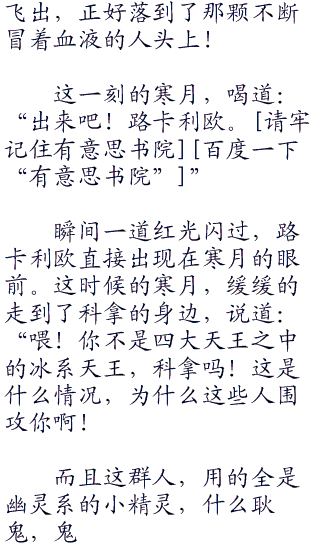 飞出，正好落到了那颗不断
冒着血液的人头上！
这一刻的寒月，喝道：
“出来吧！路卡利欧。[请牢
记住有意思书院][百度一下
“有意思书院”]”
瞬间一道红光闪过，路
卡利欧直接出现在寒月的眼
前。这时候的寒月，缓缓的
走到了科拿的身边，说道：
“喂！你不是四大天王之中
的冰系天王，科拿吗！这是
什么情况，为什么这些人围
攻你啊！
而且这群人，用的全是
幽灵系的小精灵，什么耿
鬼，鬼